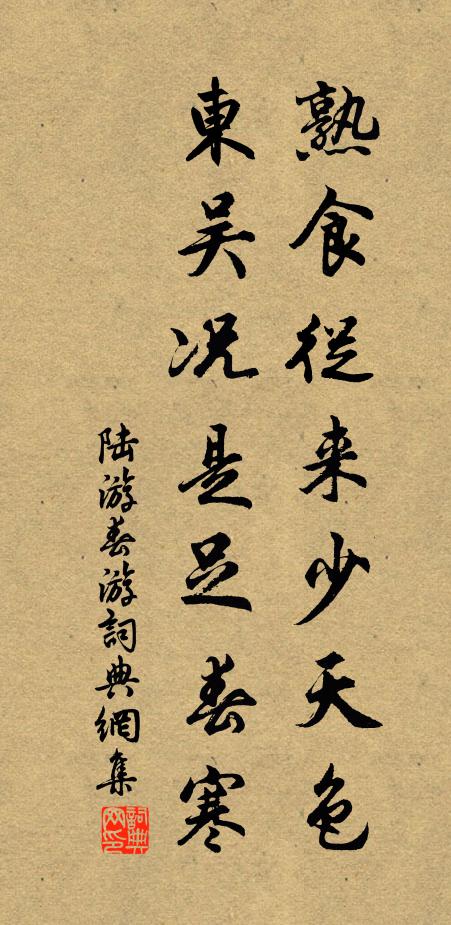 熟食從来少天色
東吴况是足春寒
陆游春游詞典網集
詞典網印